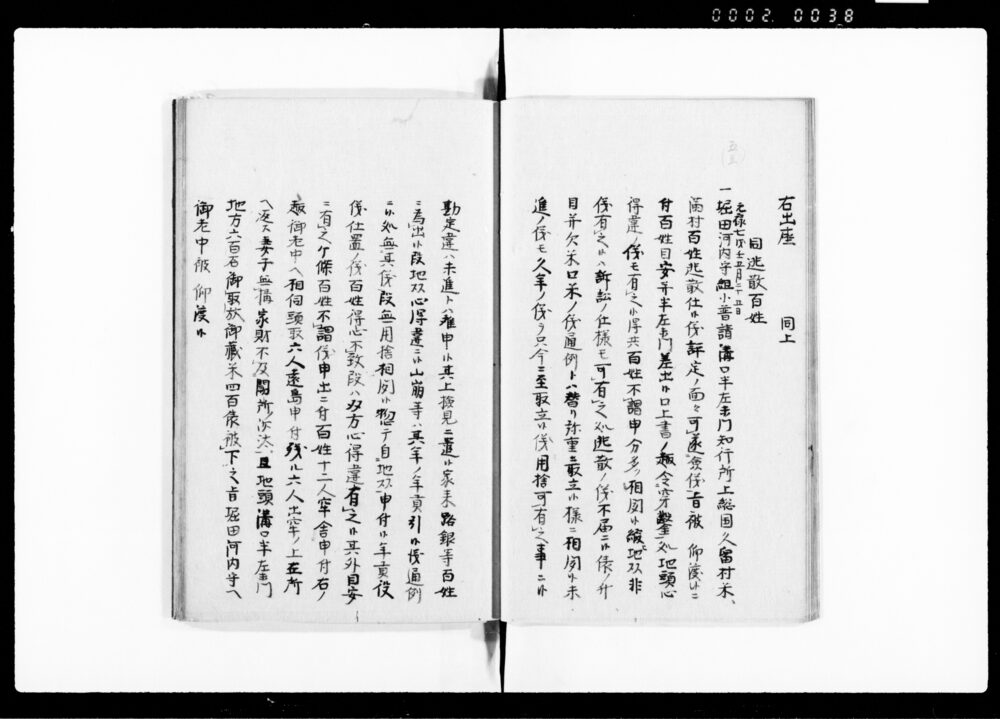 0002 0038
右出座　同上
同逃散百姓
元禄七戌年五月二十五日
一堀田河内守組小普請溝口半左衛門知行所上総国久留村米、
満村百姓逃散仕候儀評定ノ面々可遂僉儀旨被　仰渡候ニ
付百姓目安并半左衛門差出候口上書ノ趣令穿鑿処地頭心
得違ノ儀モ有之候得共百姓不謂申分多ク相聞候縦地頭非
儀有之候ハ訴訟ノ仕様モ可有之処逃散ノ儀不届ニ候俵ノ升
目并欠米口米ノ儀通例トハ替リ弥重ニ取立候様ニ相聞候未
進ノ儀モ久年ノ儀ヲ只今ニ至取立候儀用捨可有之事ニ候
勘定違ハ未進トハ難申候其上検見ニ遣候家来路銀等百姓
ニ為出候段地頭心得違ニ候山崩等ハ其年ノ年貢引候儀通例
ニ候処無其儀段無用捨相聞候惣テ自地頭申付候年貢役
儀仕置ノ儀百姓得心不致段ハ双方心得違有之候其外目安
ニ有之ケ條百姓不謂儀申出ニ付百姓十二人牢舎申付右ノ
趣御老中ヘ相伺頭取六人遠島申付残ル六人出牢ノ上在所
ヘ返ス妻子無構家財不及闕所ノ沙汰且地頭溝口半左衛門
地方六百石御取放御蔵米四百俵被下之旨堀田河内守ヘ
御老中被　仰渡候